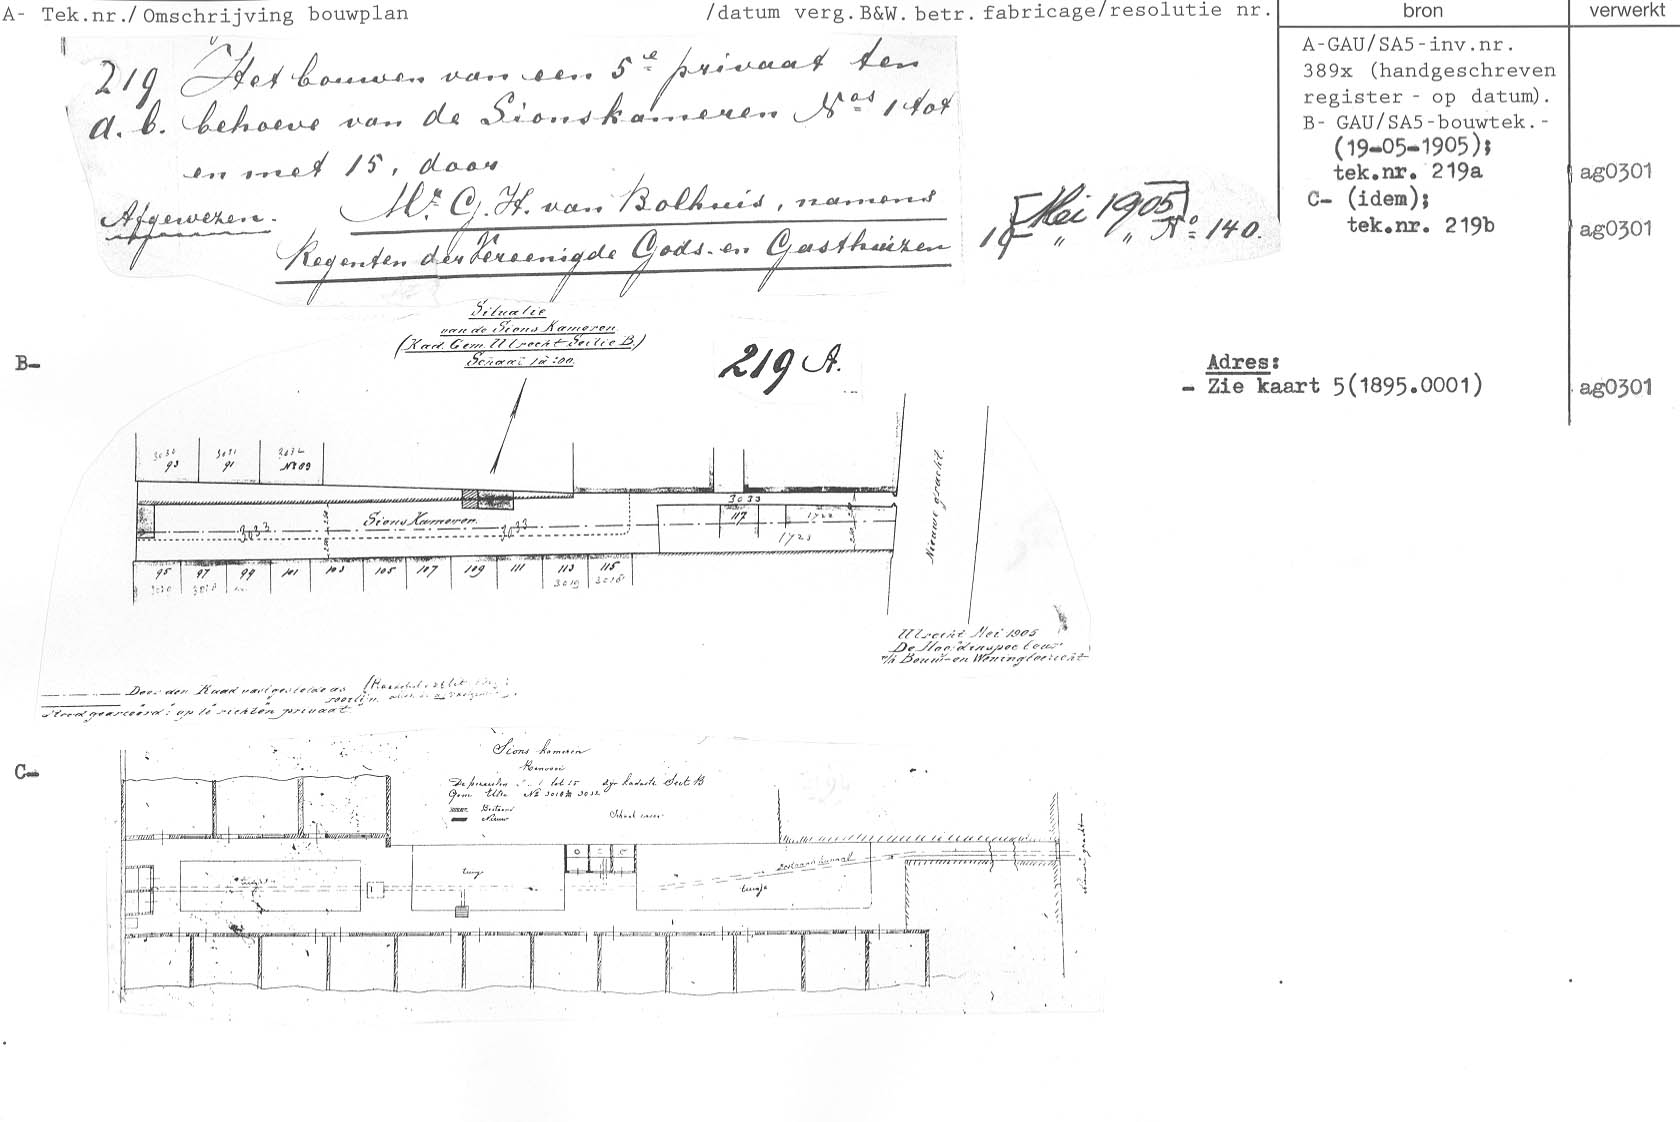 A- Tek.nr./Omschrijving bouwplan /datum verg.B&W. betr.fabricage/resolutie nr. bron verwerkt
219 Het bouwen van een 5e privaat ten
a. b. behoeve van de Sionskameren Nos 1 tot
en met 15, door
Afgewezen. Mr. G. H. van Bolhuis, namens
Regenten der Vereenigde Gods- en Gasthuizen
19 Mei 1905
" " No 140.
A-GAU/SA5-inv.nr.
389x (handgeschreven
register - op datum).
B- GAU/SA5-bouwtek.-
(19-05-1905);
tek.nr. 219a ag0301
C- (idem);
tek.nr. 219b ag0301
Adres:
- Zie kaart 5(1895.0001) ag0301
B-
Situatie
van de Sions Kameren
(Kad. Gem. Utrecht Sectie B.)
Schaal
219 A.
3030 3031 3032
93 91 No 89
3033
Sions Kameren.
3033 3033
117
1723
Nieuwe gracht.
95 97 99 101 103 105 107 109 111 113 115
3019 3018
Utrecht Mei 1905
De Hoofdinspecteur
v/h Bouw- en Woningtoezicht
Door den Raad vastgestelde as
rooilijn.
Rood gearceerd: op te richten privaat.
C-
Sions kameren
De perceelen 1 tot 15 zijn kadaster Sect. B
Gem. Utr. No 3018 3032
Bestaand
Nieuw
Schaal
tuinje
tuinje
bestaand kanaal
tuinje